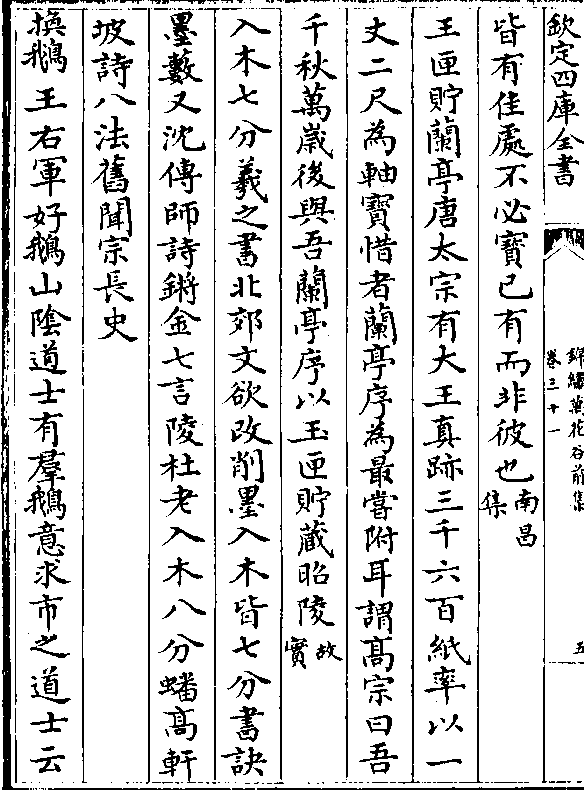 欽定四庫全書
錦繡萬花谷前集
卷三十一
五
皆有佳處不必寳已有而非彼也南昌集
王匣貯蘭亭唐太宗有大王真跡三千六百紙率以一
丈二尺為軸寳惜者蘭亭序為最當附耳謂髙宗曰吾
千秋萬嵗後與吾蘭亭序以玉匣貯藏昭陵故實
入木七分羲之書北郊文欲改削墨入木皆七分書訣
墨藪又沈傳師詩鏘金七言陵杜老入木八分蟠髙軒
坡詩八法舊聞宗長史
換鵝王右軍好鵝山隂道士有羣鵝意求市之道士云